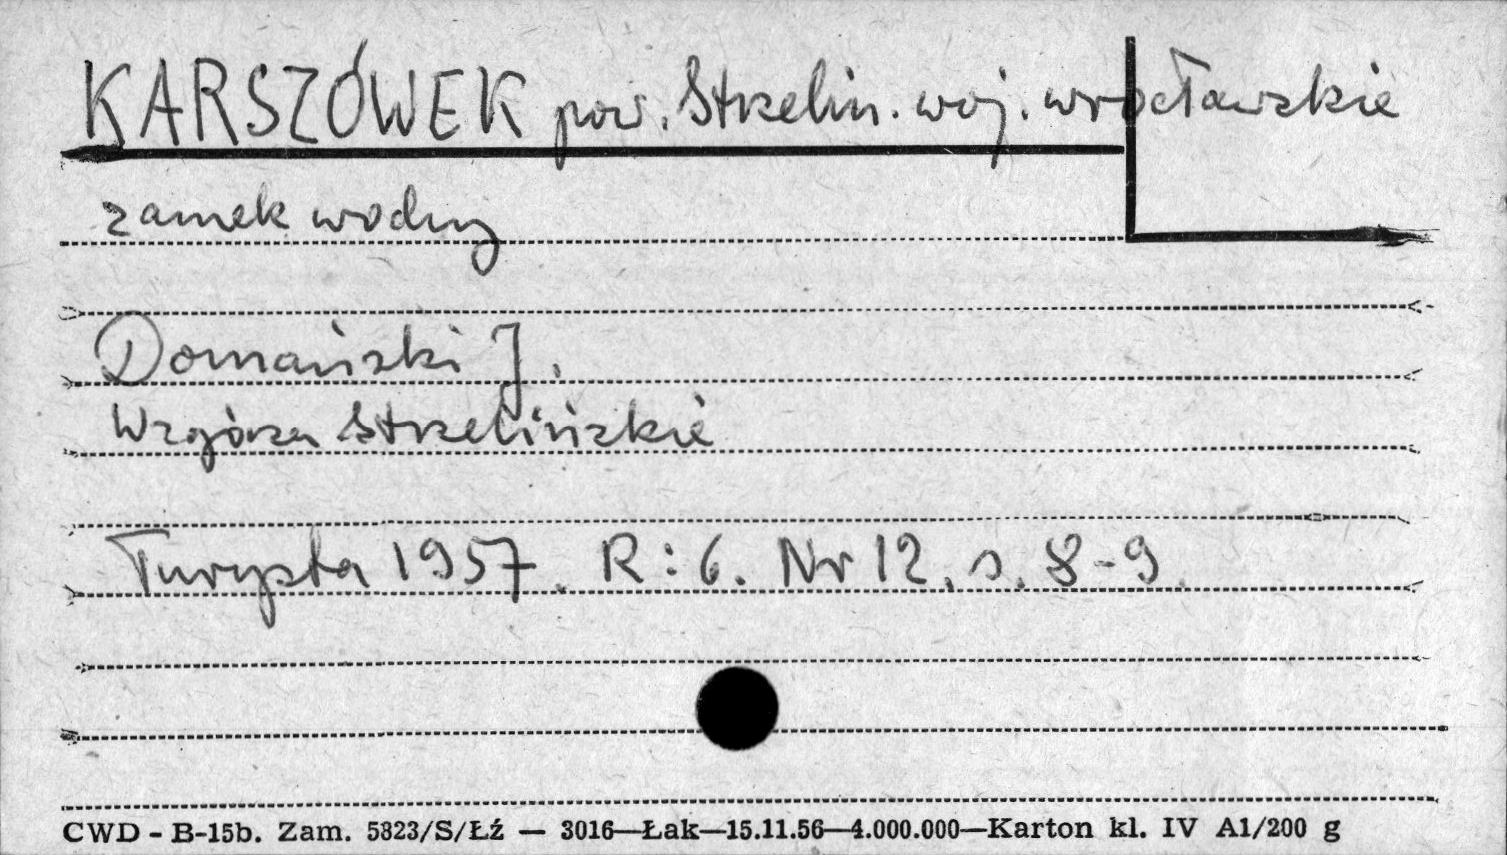 KARSZÓWEK pow. Strzelin. woj. wrocławskie
zamek wodny
Domański J.
Wzgórza Strzelińskie
Turysta 1957. R:6. Nr 12. s. 8-9.
CWD - B-15b. Zam. 5823/S/Łź — 3016—Łak—15.11.56—4.000.000—Karton kl. IV A1/200 g